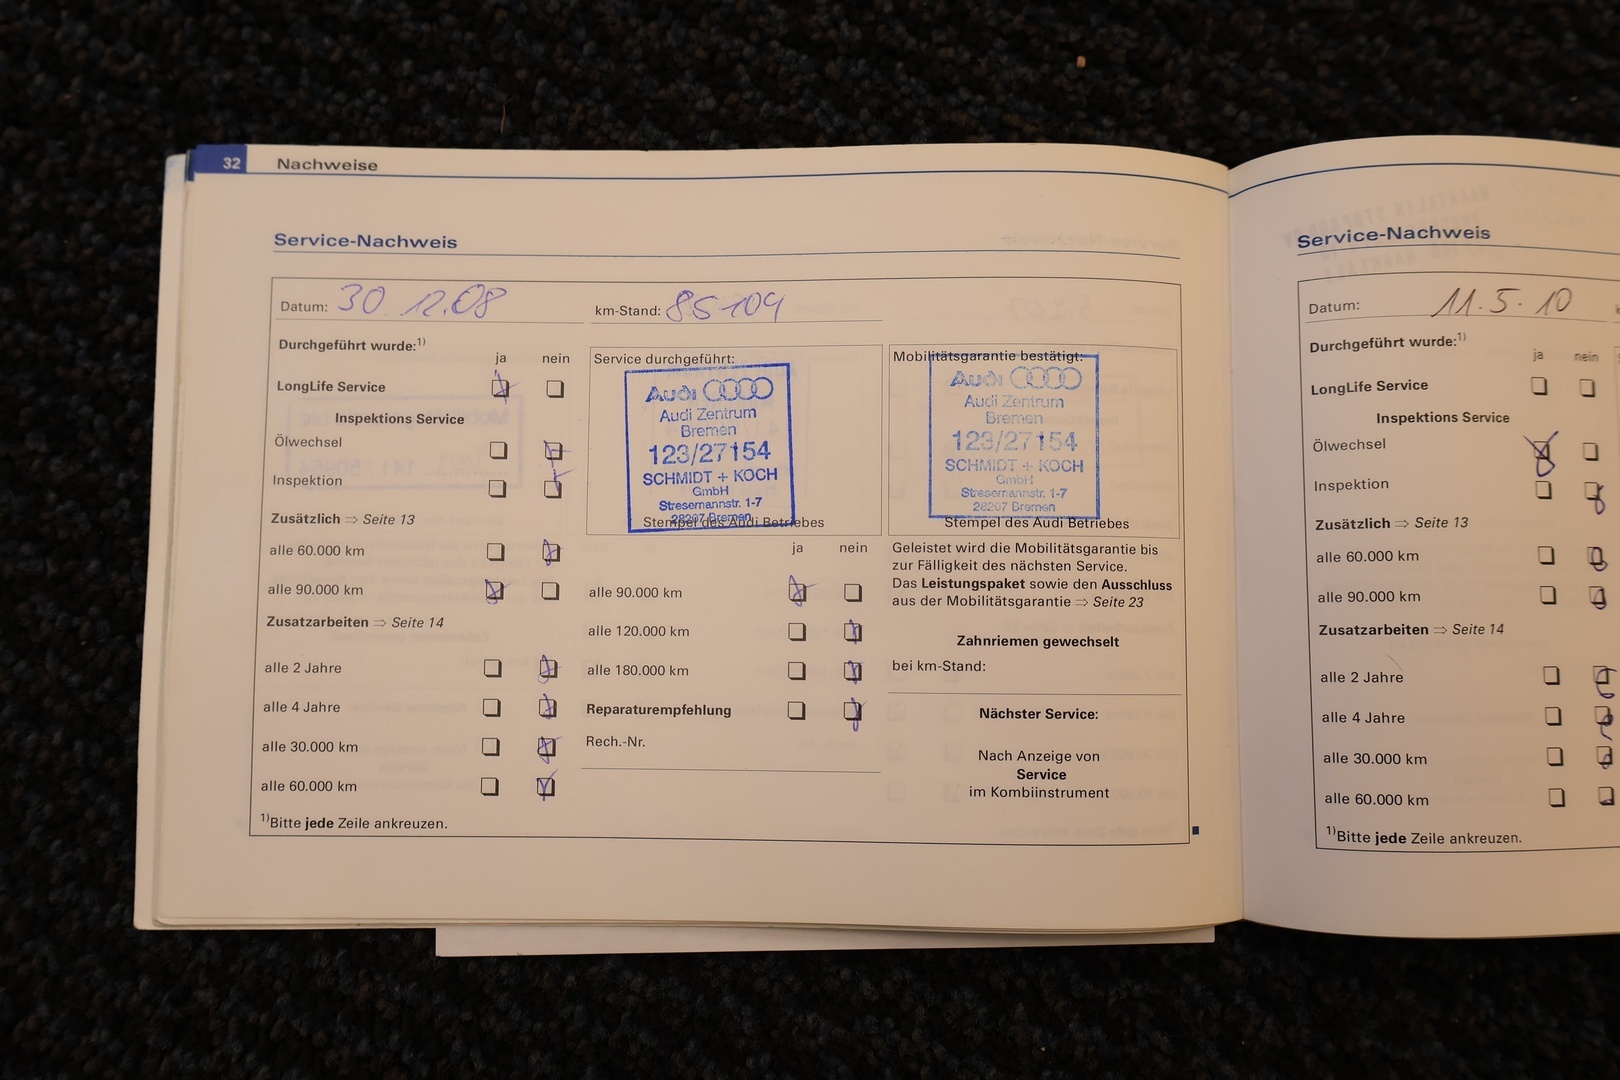 32 Nachweise
Service-Nachweis
Datum: 30.12.08
km-Stand: 85104
Durchgeführt wurde:1)
ja nein
LongLife Service
Inspektions Service
Ölwechsel
Inspektion
Zusätzlich ⇒ Seite 13
alle 60.000 km
alle 90.000 km
Zusatzarbeiten ⇒ Seite 14
alle 2 Jahre
alle 4 Jahre
alle 30.000 km
alle 60.000 km
1)Bitte jede Zeile ankreuzen.
Service durchgeführt:
Audi
Audi Zentrum
Bremen
123/27154
SCHMIDT + KOCH
GmbH
Stresemannstr. 1-7
28207 Bremen
Stempel des Audi Betriebes
ja nein
alle 90.000 km
alle 120.000 km
alle 180.000 km
Reparaturempfehlung
Rech.-Nr.
Mobilitätsgarantie bestätigt:
Audi
Audi Zentrum
Bremen
123/27154
SCHMIDT + KOCH
GmbH
Stresemannstr. 1-7
28207 Bremen
Stempel des Audi Betriebes
Geleistet wird die Mobilitätsgarantie bis
zur Fälligkeit des nächsten Service.
Das Leistungspaket sowie den Ausschluss
aus der Mobilitätsgarantie ⇒ Seite 23
Zahnriemen gewechselt
bei km-Stand:
Nächster Service:
Nach Anzeige von
Service
im Kombiinstrument
Service-Nachweis
Datum: 11.5.10
Durchgeführt wurde:1)
ja nein
LongLife Service
Inspektions Service
Ölwechsel
Inspektion
Zusätzlich ⇒ Seite 13
alle 60.000 km
alle 90.000 km
Zusatzarbeiten ⇒ Seite 14
alle 2 Jahre
alle 4 Jahre
alle 30.000 km
alle 60.000 km
1)Bitte jede Zeile ankreuzen.